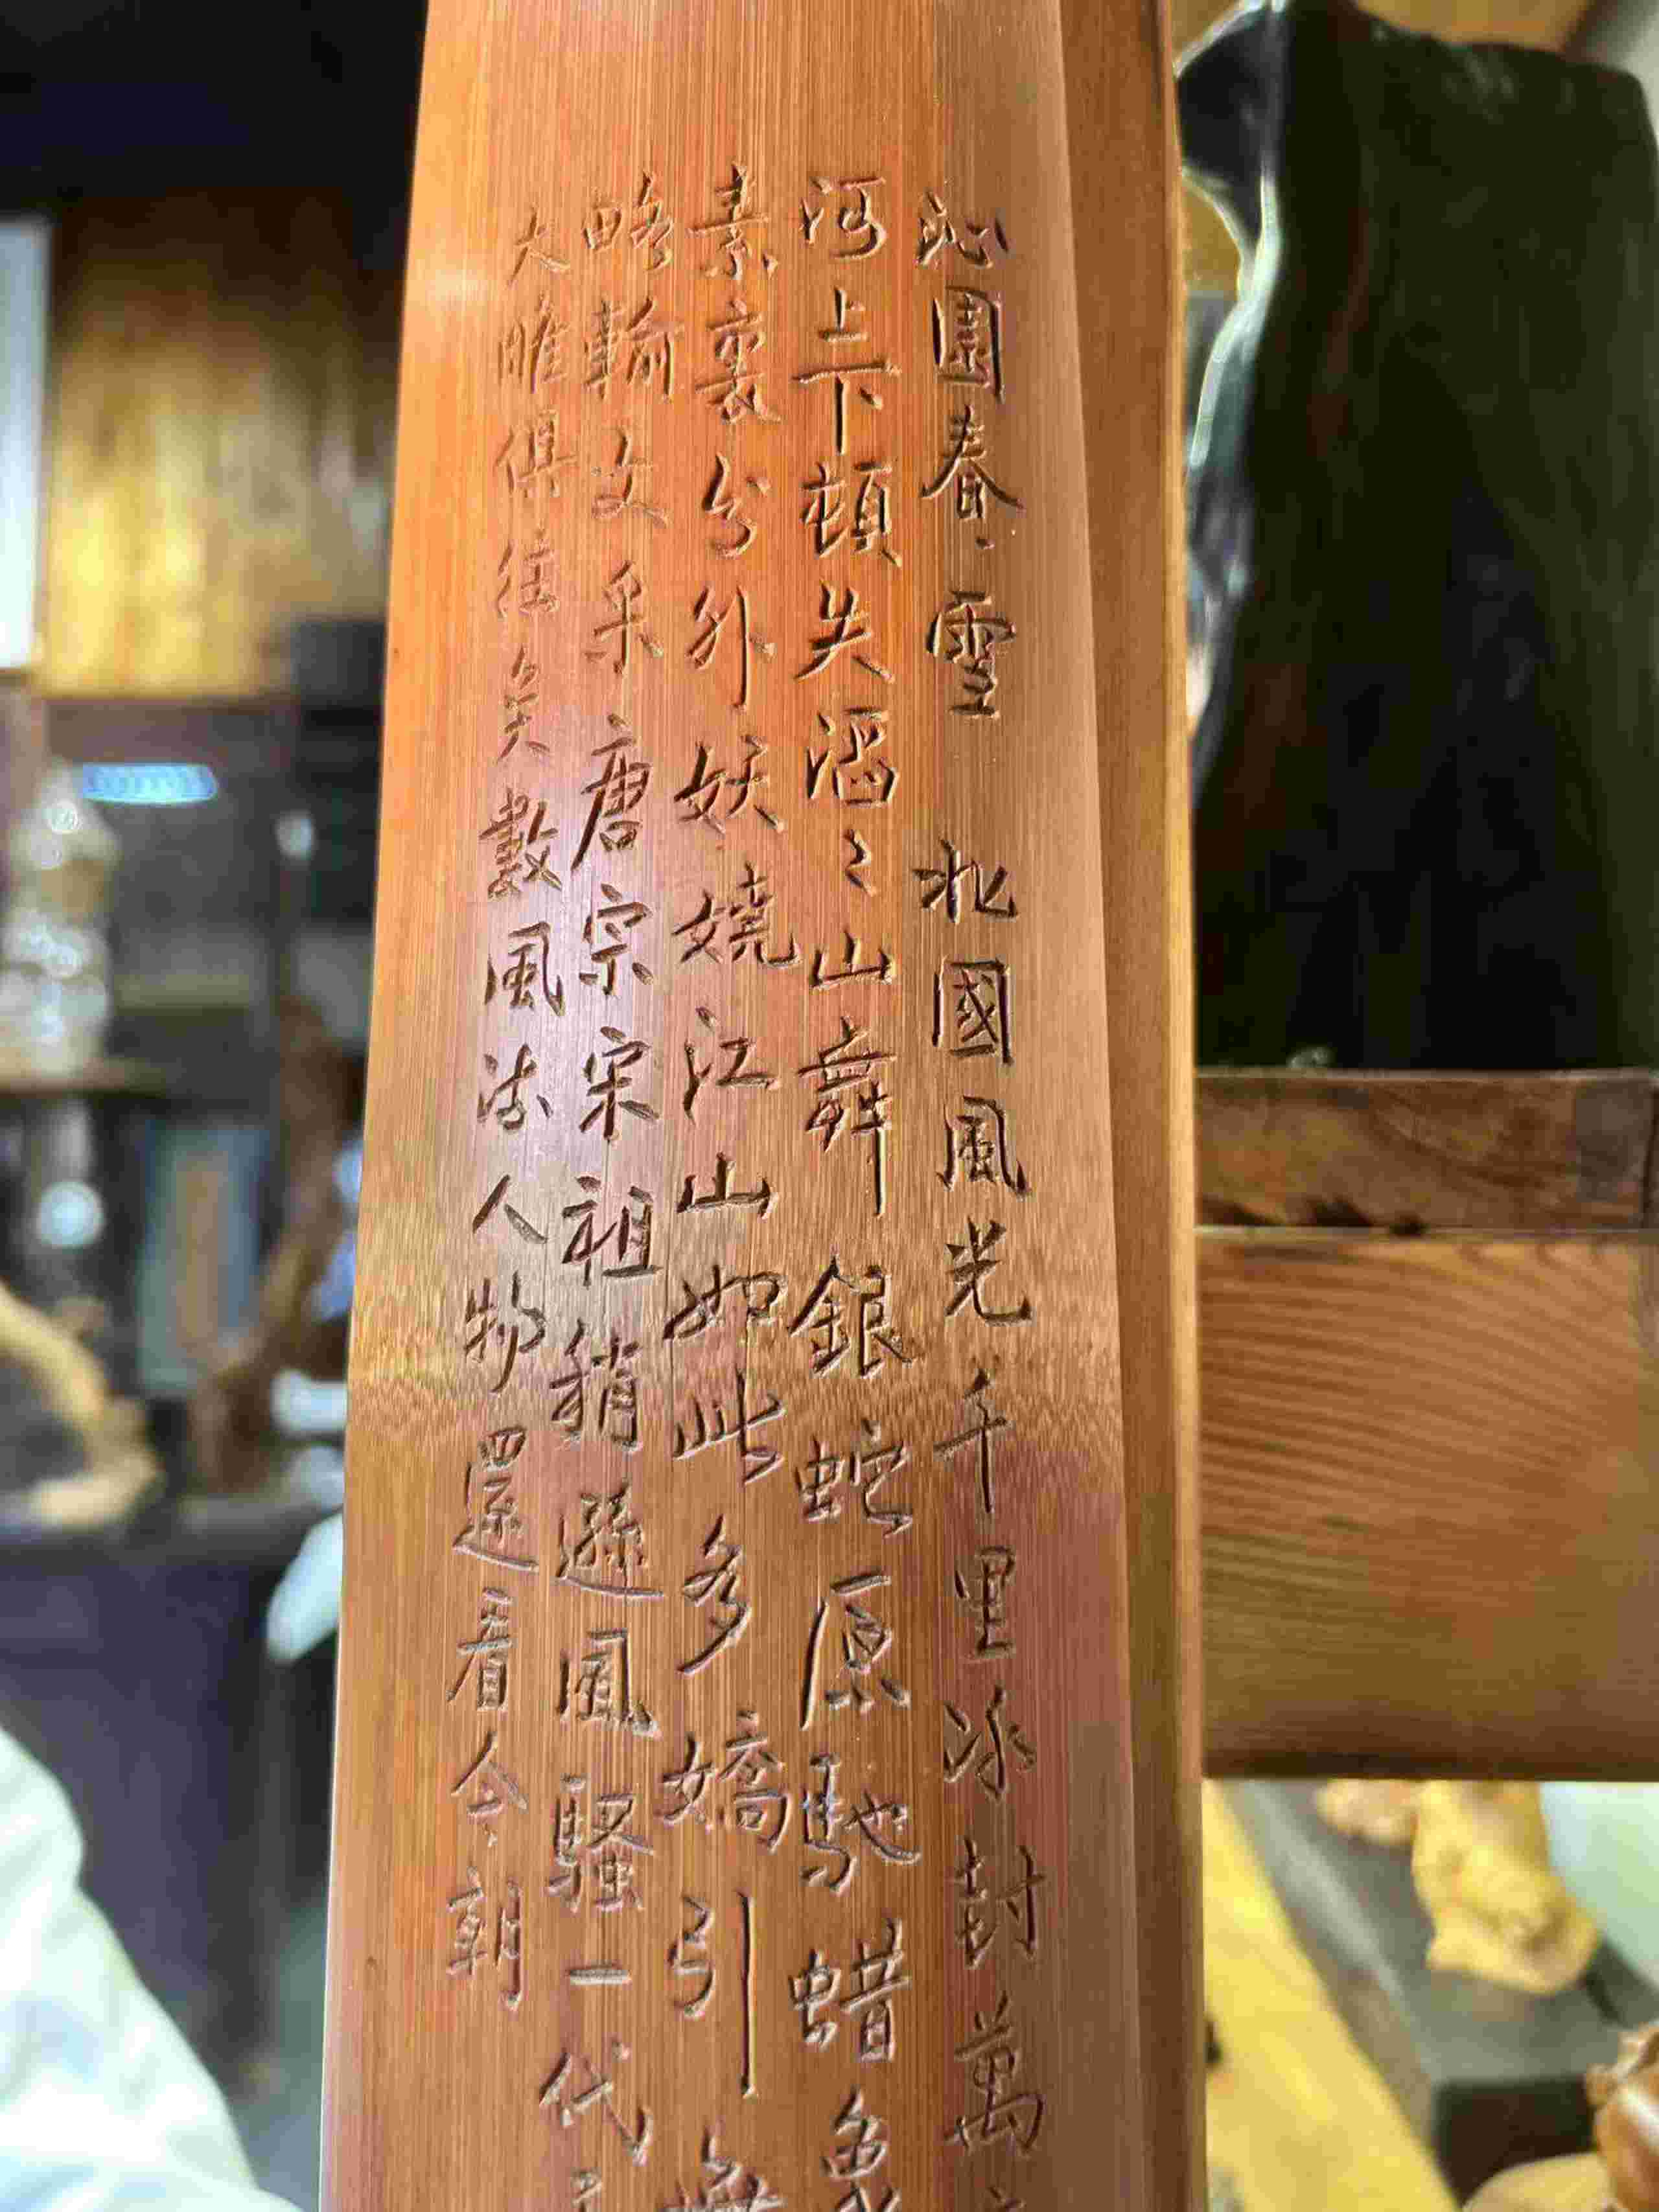 沁園春·雪 北國風光千里冰封萬
河上下頓失滔〻山舞銀蛇原馳蜡象
素裹分外妖嬈江山如此多嬌引無
略輸文采唐宗宋祖稍遜風騷一代
大雎俱往矣數風流人物還看今朝